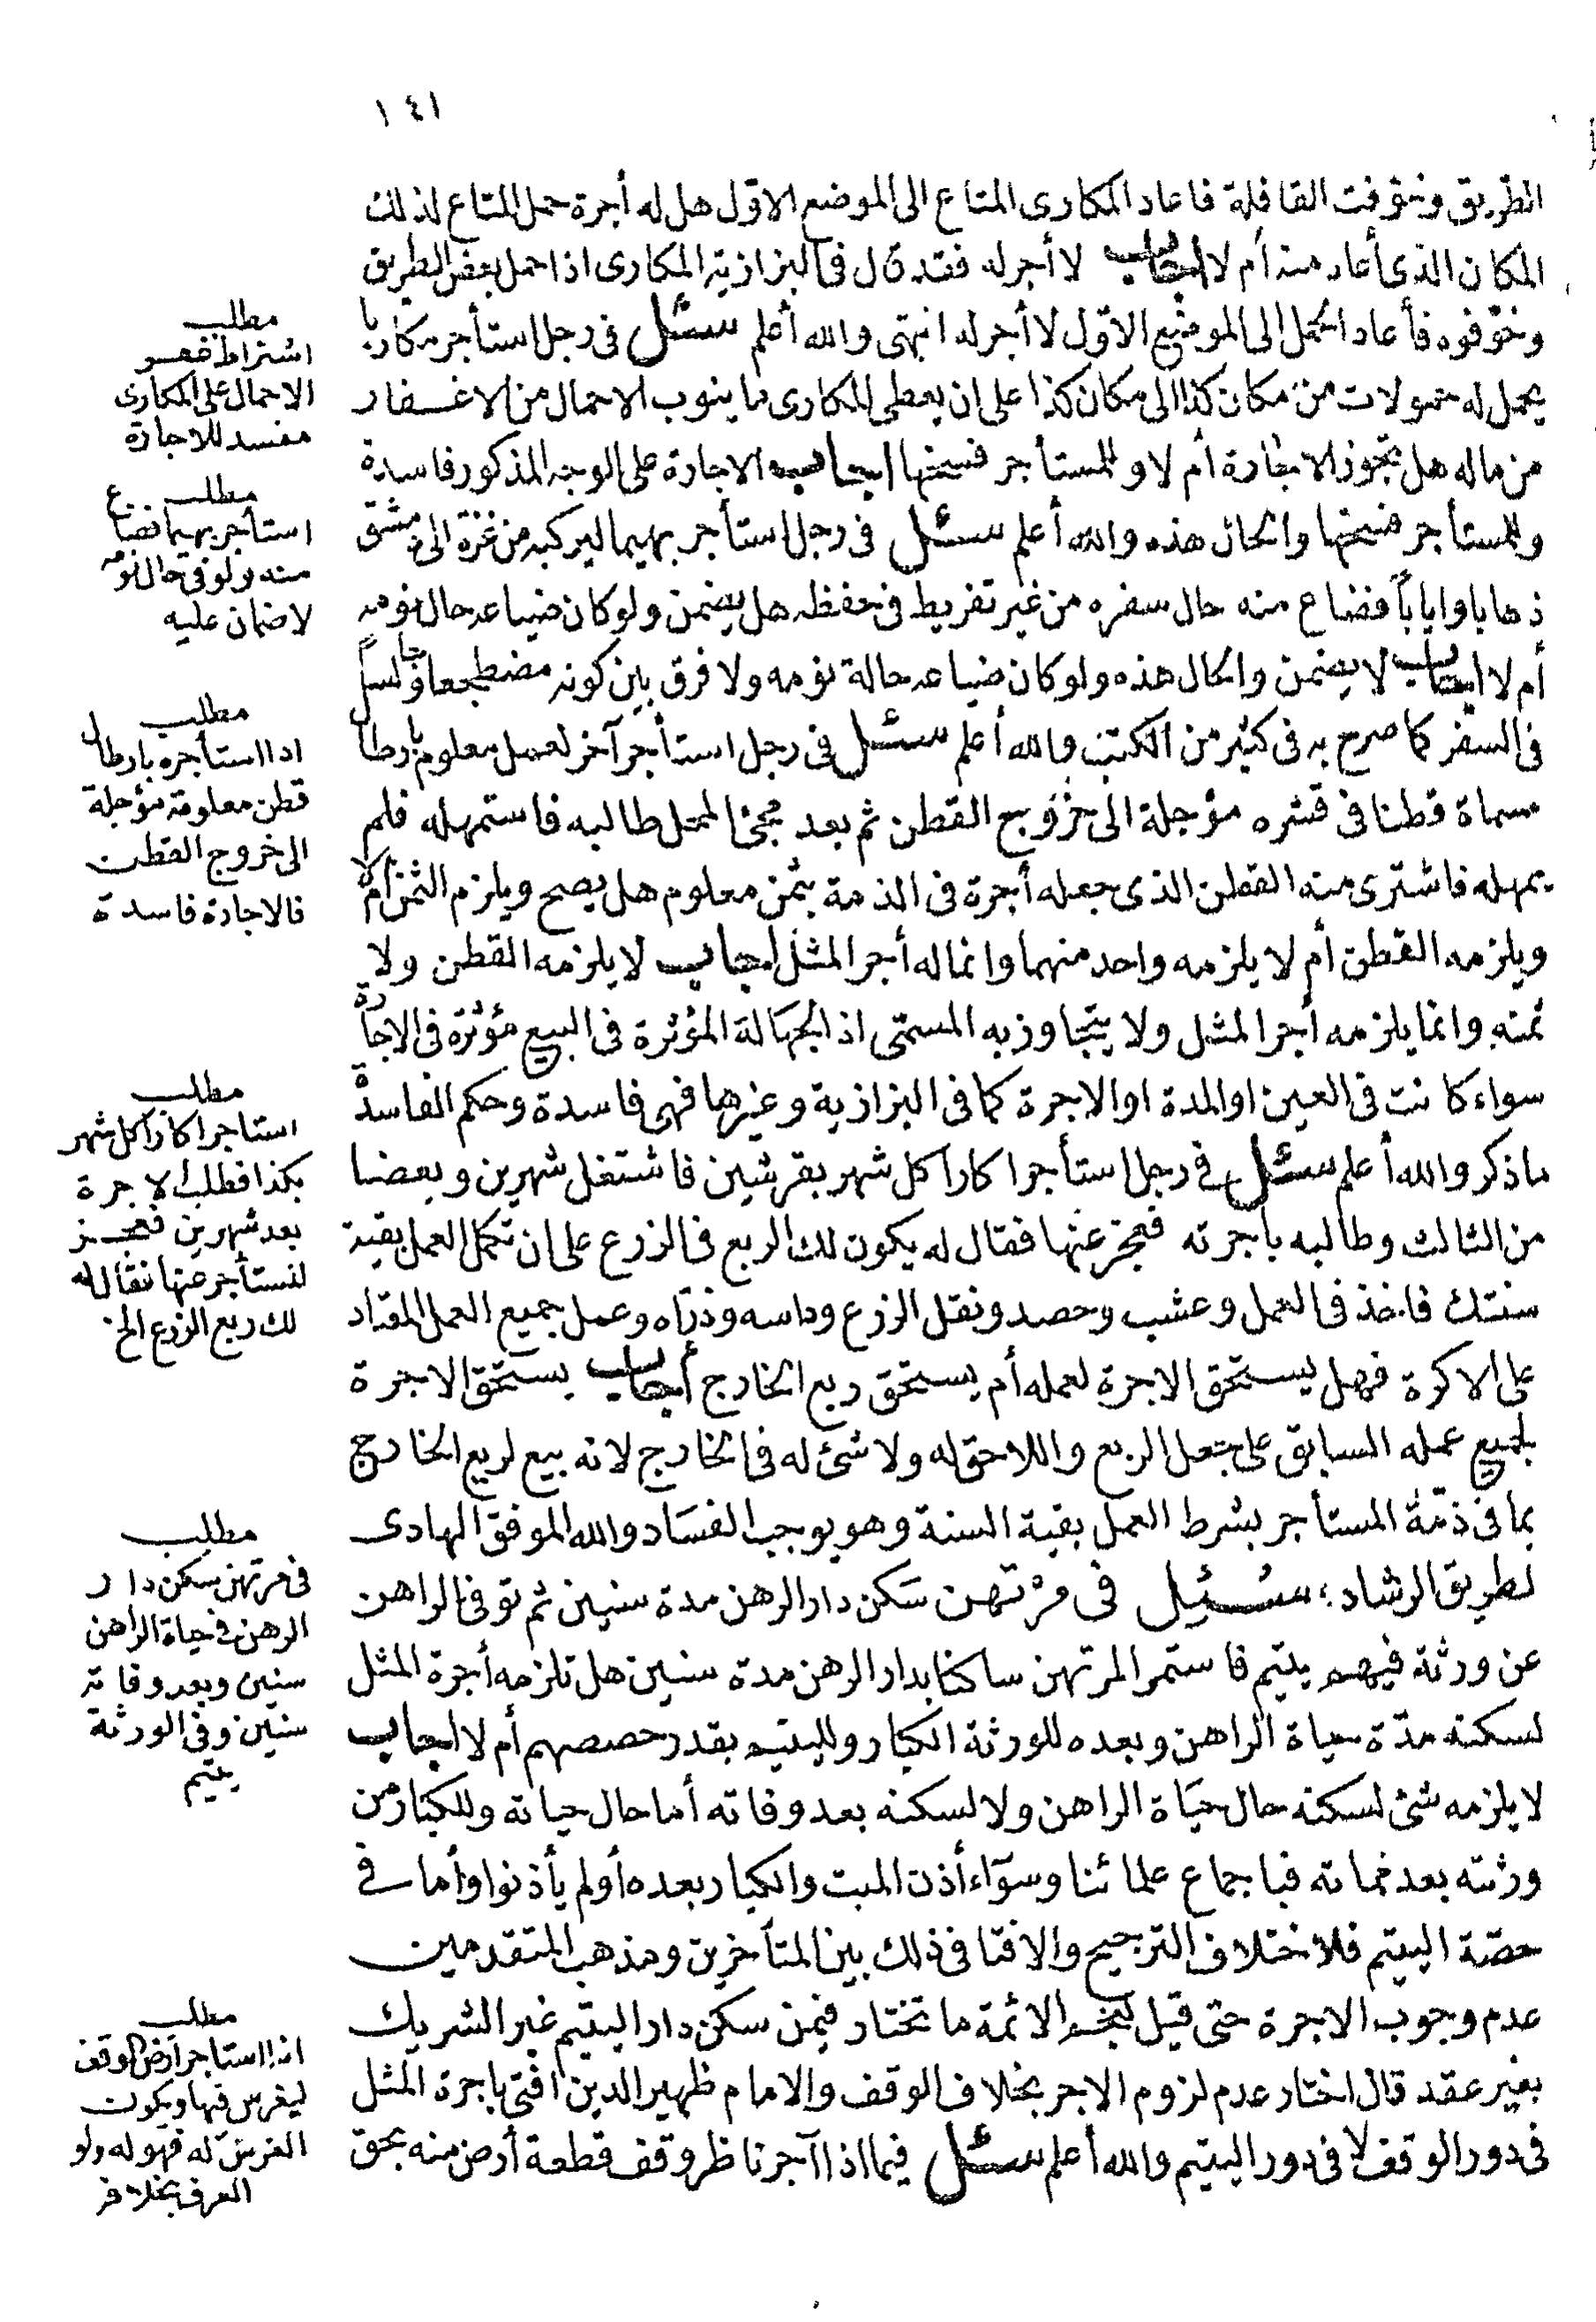 ١٤١
الطريق وتخوفت القافلة فاعاد المكارى المتاع الى الموضع الاوّل هل له أجرة حمل المتاع لذلك
المكان الذى أعاد منه أم لا أجاب لا أجر له فقد قال فى البزازية المكارى اذا حمل بعض الطريق
وخوّفوه فأعاد الحمل الى الموضع الاوّل لا أجر له انتهى والله أعلم سئل فى رجل استأجر مكاريا
يحمل له حمولات من مكان كذا الى مكان كذا على ان يعطى المكارى ما ينوب الاحمال من الاغفار
من ماله هل تجوز الاجارة أم لا وللمستأجر فسخها اجاب الاجارة على الوجه المذكور فاسدة
وللمستأجر فسخها والحال هذه والله أعلم سئل فى رجل استأجر بهيما ليركبه من غزة الى دمشق
ذهابا وايابا فضاع منه حال سفره من غير تفريط فى حفظه هل يضمن ولو كان ضياعه حال نومه
أم لا اجاب لا يضمن والحال هذه ولو كان ضياعه حالة نومه ولا فرق بين كونه مضطجعا وجالسا
فى السفر كما صرح به فى كثير من الكتب والله أعلم سئل فى رجل استأجر آخر لعمل معلوم بارطال
مسماة قطنا فى قشره مؤجلة الى خروج القطن ثم بعد مجئ المحل طالبه فاستمهله فلم
يمهله فاشترى منه القطن الذى جعله أجرة فى الذمة بثمن معلوم هل يصح ويلزم الثمن أم لا
ويلزمه القطن أم لا يلزمه واحد منهما وانما له أجر المثل اجاب لا يلزمه القطن ولا
ثمنه وانما يلزمه أجر المثل ولا يتجاوز به المسمى اذ الجهالة المؤثرة فى البيع مؤثرة فى الاجارة
سواء كانت فى العين او المدة او الاجرة كما فى البزازية وغيرها فهى فاسدة وحكم الفاسدة
ما ذكر والله أعلم سئل فى رجل استأجر اكارا كل شهر بقرشين فاشتغل شهرين وبعضا
من الثالث وطالبه بأجرته فعجز عنها فقال له يكون لك الربع فى الزرع على ان تكمل العمل بقية
سنتك فاخذ فى العمل وعشب وحصد ونقل الزرع وداسه وذرّاه وعمل جميع العمل المعتاد
على الاكرة فهل يستحق الاجرة لعمله أم يستحق ربع الخارج أجاب يستحق الاجرة
لجميع عمله السابق على جعل الربع واللاحق له ولا شئ له فى الخارج لانه بيع لربع الخارج
بما فى ذمّة المستأجر بشرط العمل بقية السنة وهو يوجب الفساد والله الموفق الهادى
لطريق الرشاد سئل فى مرتهن سكن دار الرهن مدة سنين ثم توفى الراهن
عن ورثة فيهم يتيم فاستمر المرتهن ساكنا بدار الرهن مدة سنين هل تلزمه أجرة المثل
لسكنه مدّة حياة الراهن وبعده للورثة الكبار ولليتيم بقدر حصصهم أم لا اجاب
لا يلزمه شئ لسكنه حال حياة الراهن ولا لسكنه بعد وفاته أما حال حياته وللكبار من
ورثته بعد مماته فباجماع علمائنا وسوآء أذن الميت والكبار بعده أو لم يأذنوا وأما فى
حصّة اليتيم فلاختلاف الترجيح والافتا فى ذلك بين المتأخرين ومذهب المتقدمين
عدم وجوب الاجرة حتى قيل لنجم الائمة ما تختار فيمن سكن دار اليتيم غير الشريك
بغير عقد قال اختار عدم لزوم الاجر بخلاف الوقف والامام ظهير الدين افتى باجرة المثل
فى دور الوقف لا فى دور اليتيم والله أعلم سئل فيما اذا آجر ناظر وقف قطعة أرض منه بحق
مطلب
اشتراط خفر
الاحمال على المكارى
مفسد للاجارة
مطلب
استأجر بهيما فضاع
منه ولو فى حال نومه
لا ضمان عليه
مطلب
اذا استأجره بارطال
قطن معلومة مؤجلة
الى خروج القطن
فالاجارة فاسدة
مطلب
استاجر اكارا كل شهر
بكذا فطلب الاجرة
بعد شهرين فعجز
المستأجر عنها فقال له
لك ربع الزرع الخ
مطلب
فى مرتهن سكن دار
الرهن فى حياة الراهن
سنين وبعد وفاته
سنين وفى الورثة
يتيم
مطلب
اذا استاجر أرض الوقف
ليغرس فيها ويكون
الغرس له فهو له ولو
العرف بخلافه